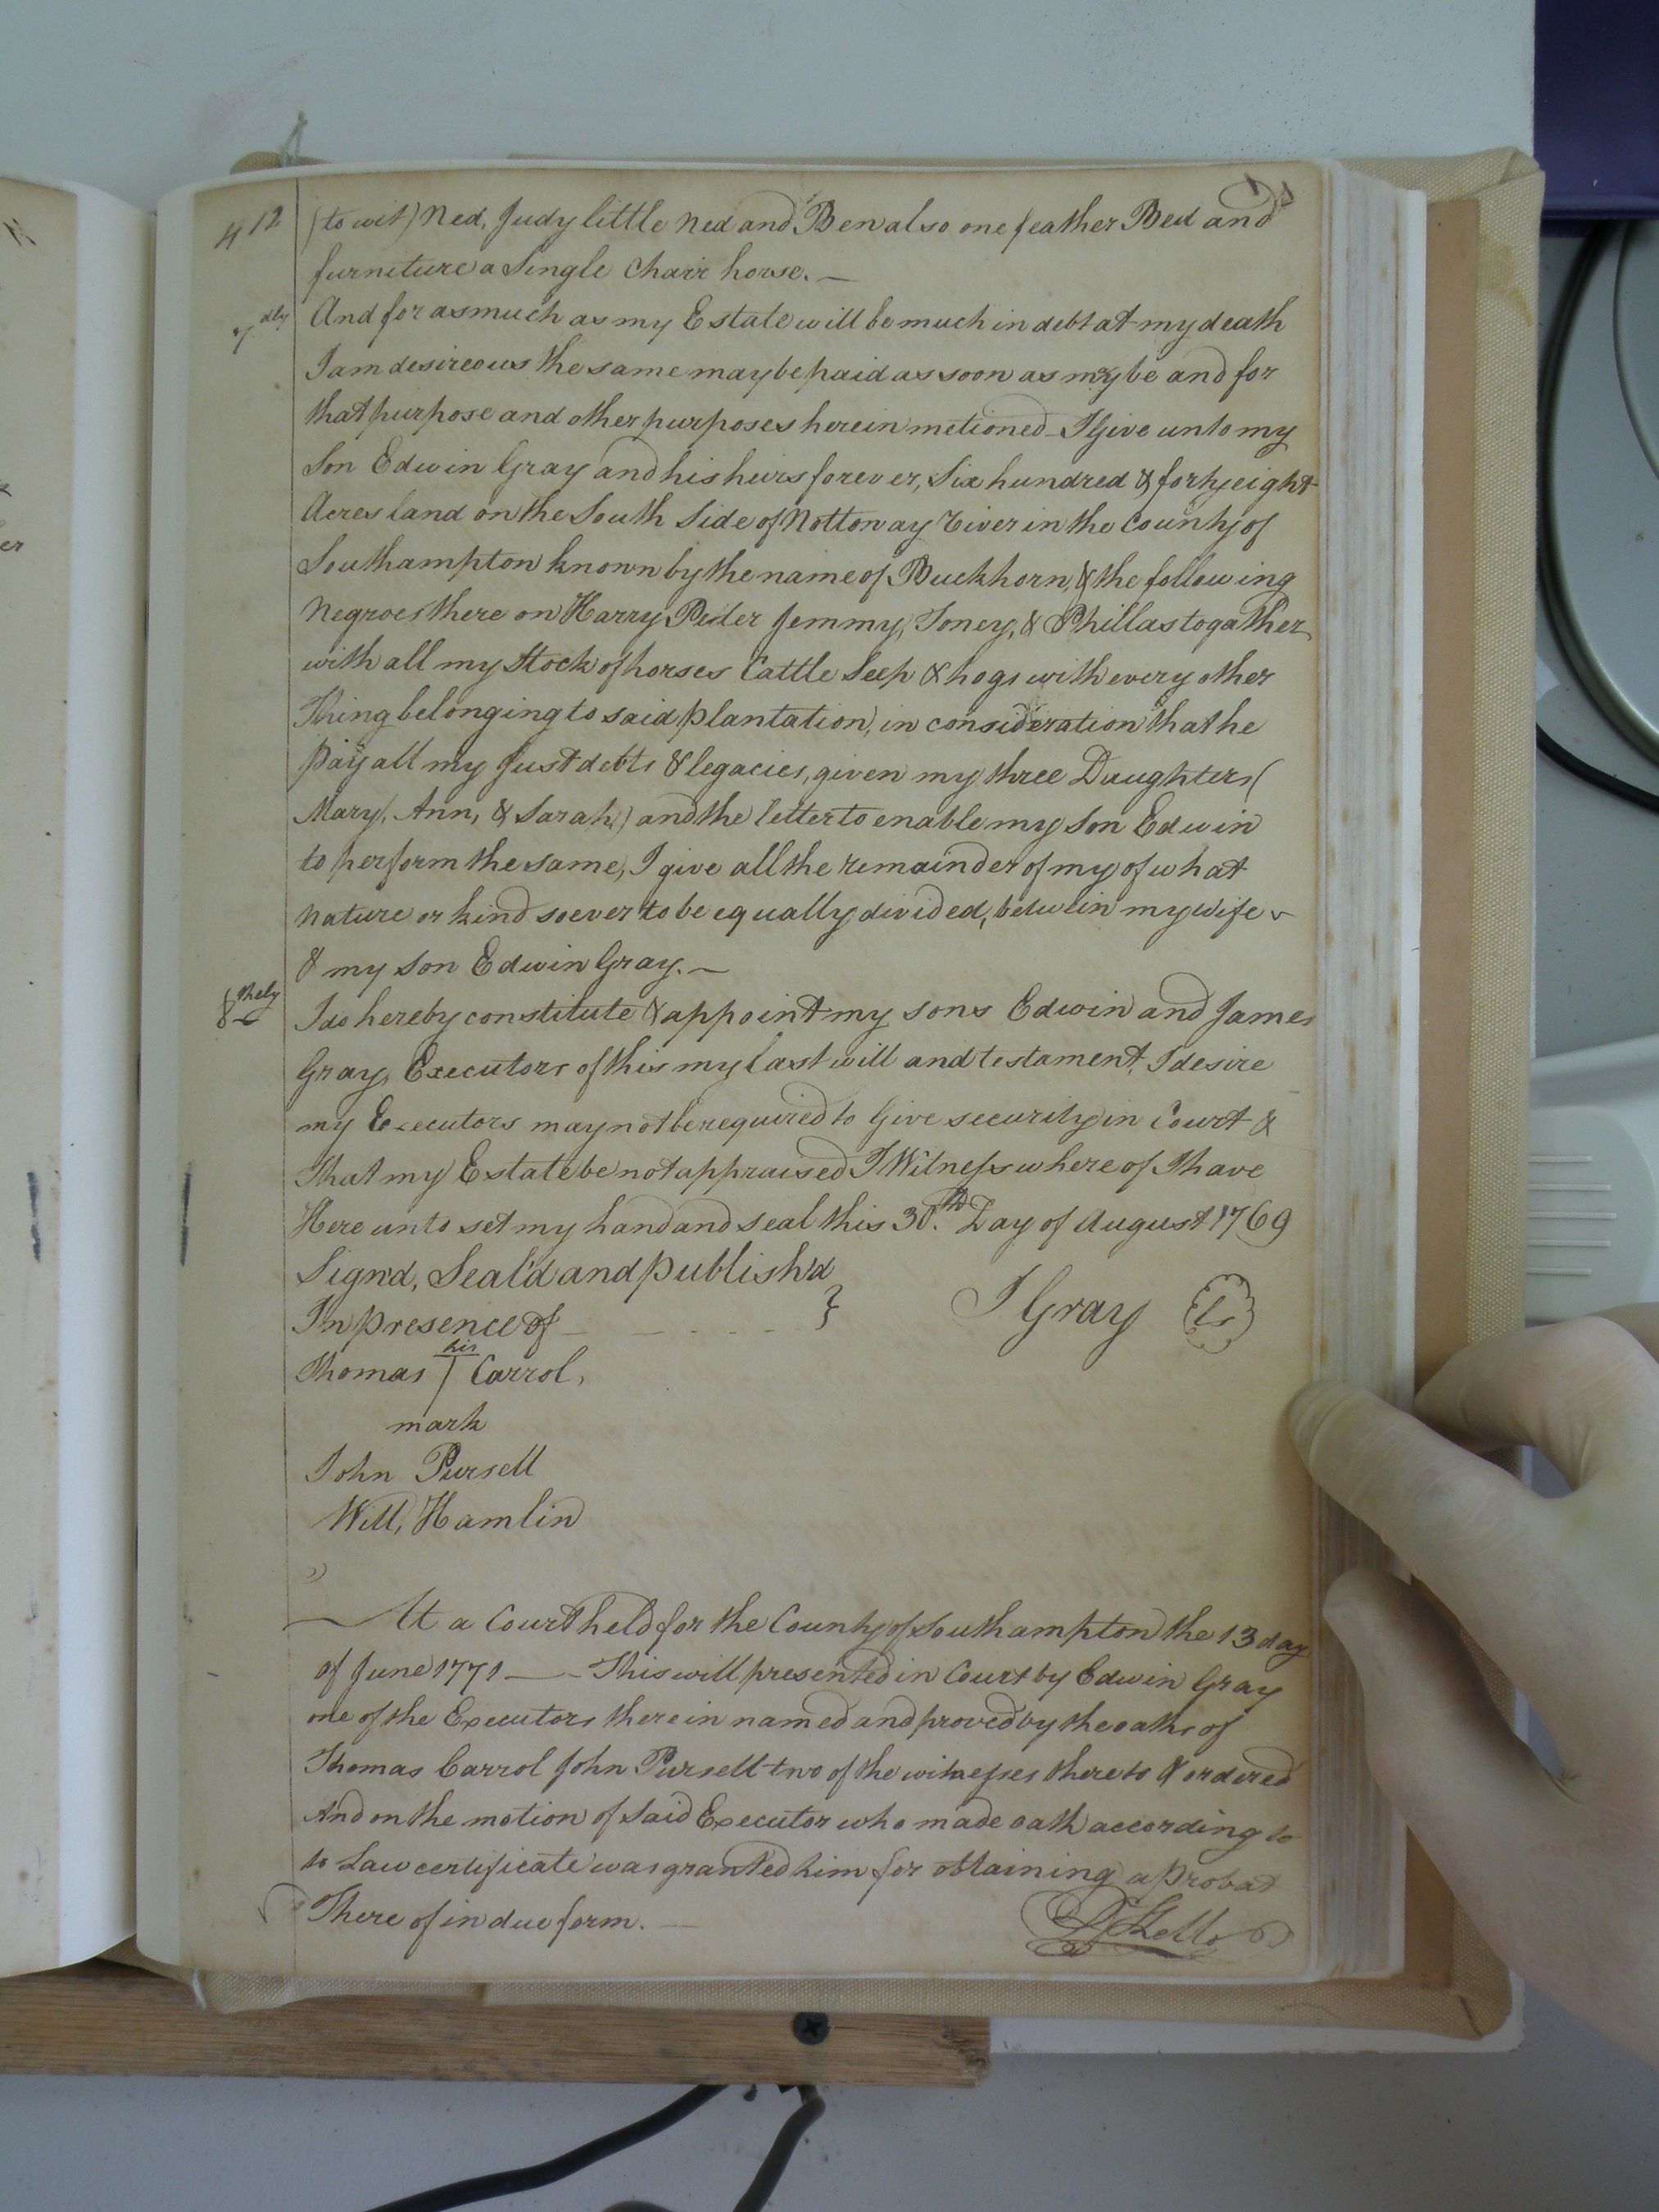 412
(to wit) Ned, Judy little Ned and Ben also one feather Bed and
furniture a Single Chair horse. —
7dly And for as much as my Estate will be much in debt at my death
I am desireous the same may be paid as soon as may be and for
that purpose and other purposes herein metioned I Give unto my
Son Edwin Gray and his heirs forever, Six hundred & forty eight
Acres land on the South Side of Nottoway River in the County of
Southampton known by the name of Buckhorn, & the following
Negroes there on Harry, Peter Jemmy, Toney, & Phillas togather
with all my Stock of horses Cattle Seep & hogs with every other
Thing belonging to said plantation, in consideration that he
Pay all my Just debts & legacies, given my three Daughters (
Mary, Ann, & Sarah) and the letter to enable my Son Edwin
to perform the same, I give all the remainder of my of what
Nature or kind soever to be equally divided, between my wife
& my son Edwin Gray. —
8thely I do hereby constitute & appoint my sons Edwin and James
Gray, Executors of this my last will and testament, I desire
my Executors may not be required to Give security in Court &
That my Estate be not appraised I Witness where of I have
Here unto set my hand and seal this 30th. Day of August 1769
Sign'd, Seal'd and publish'd
In presence of } J Gray Ls
his
Thomas T Carrol,
mark
John Pursell
Will, Hamlin
At a Court held for the County of Southampton the 13 day
of June 1771 — This will presented in Court by Edwin Gray
one of the Executors therein named and proved by the oaths of
Thomas Carrol John Pursell two of the witnesses thereto & ordered
And on the motion of Said Executor who made oath according to
to Law certificate was granted him for obtaining a Probat
There of in due form. —